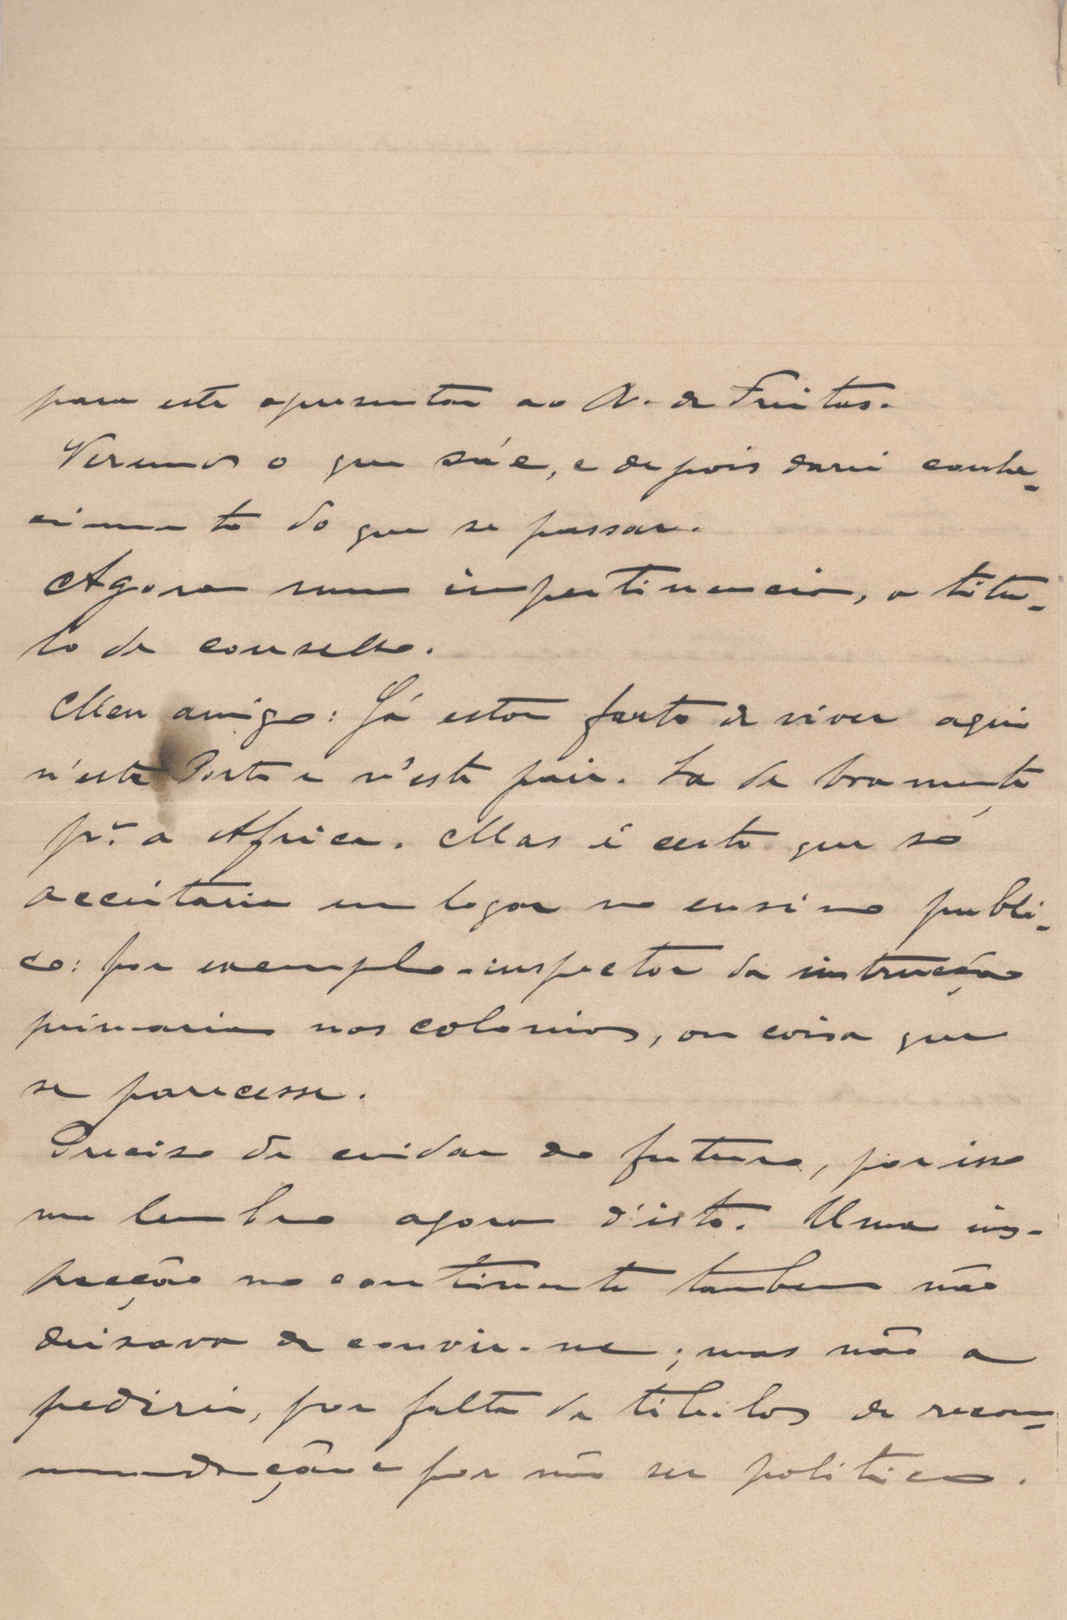 para este apresentar ao R. de Freitas.
Veremos o que sáe, e depois darei conhe-
cimento do que se passar.
Agora uma impertinencia, a titu-
lo de conselho.
Meu amigo: Já estou farto de viver aqui
n'este Porto e n'este paiz. Ia de boa mente
pr. a Africa. Mas é certo que só
acceitaria um logar no ensino publi-
co: por exemplo - inspector da instrucção
primaria nas colonias, ou coisa que
se parecesse.
Preciso de cuidar do futuro, por isso
me lembro agora d'isto. Uma ins-
pecção no continente tambem não
deixava de convir-me; mas não a
pedirei, por falta de titulos de recom-
mendação e por não ser politico.